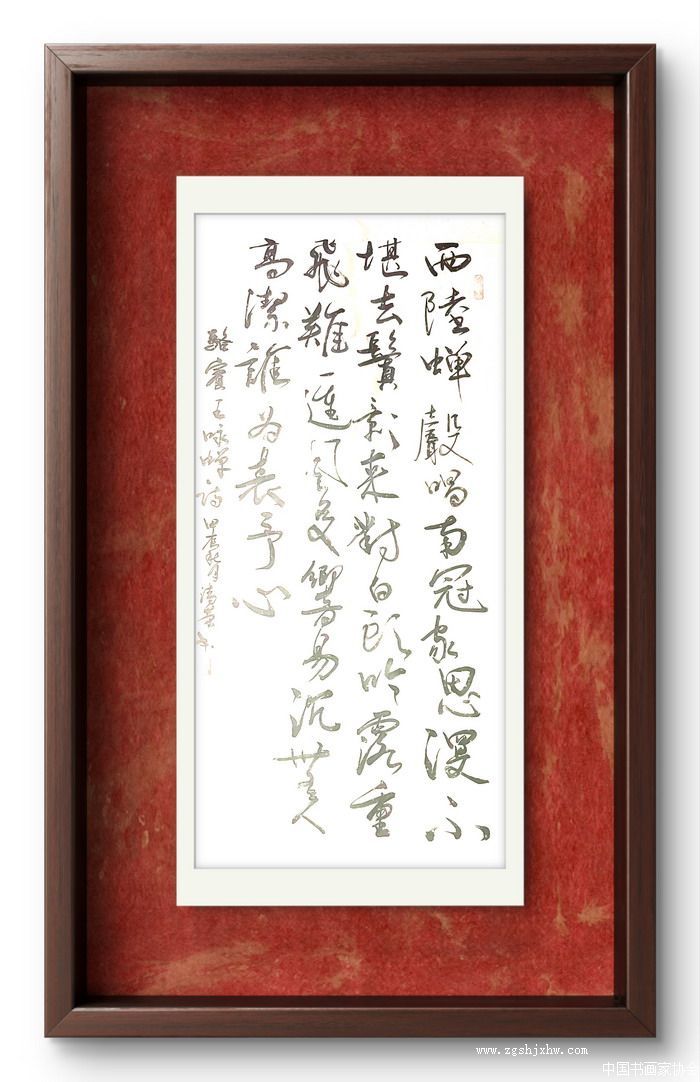 西陸蝉聲唱南冠客思不
堪玄鬢影来對白头吟露重
飛難進風多響易沉人
高潔誰为表予心
駱賓王咏蝉詩甲辰秋月
www.zgshjxhw.com
中国书画家协会